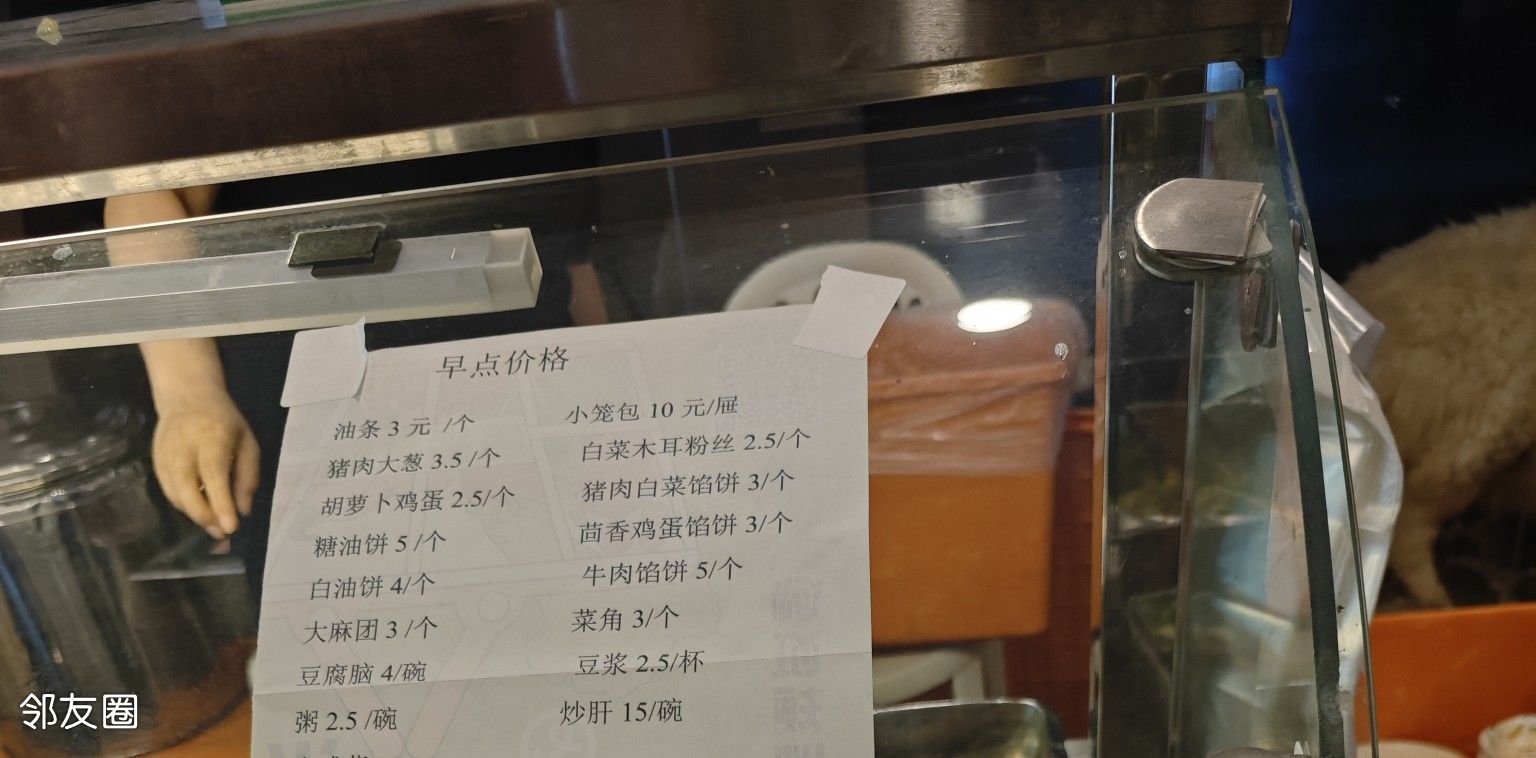 早点价格
油条 3 元 /个
猪肉大葱 3.5 /个
胡萝卜鸡蛋 2.5/个
糖油饼 5 /个
白油饼 4/个
大麻团 3 /个
豆腐脑 4/碗
粥 2.5 /碗
小笼包 10 元/屉
白菜木耳粉丝 2.5/个
猪肉白菜馅饼 3/个
茴香鸡蛋馅饼 3/个
牛肉馅饼 5/个
菜角 3/个
豆浆 2.5/杯
炒肝 15/碗
邻友圈